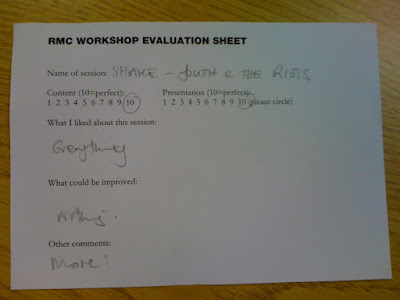 RMC WORKSHOP EVALUATION SHEET
Name of session: SHAKE – YOUTH & THE RIOTS
Content (10=perfect): Presentation (10=perfect):
1 2 3 4 5 6 7 8 9 10 1 2 3 4 5 6 7 8 9 10 (please circle)
What I liked about this session:
Everything
What could be improved:
Nothing.
Other comments:
More!